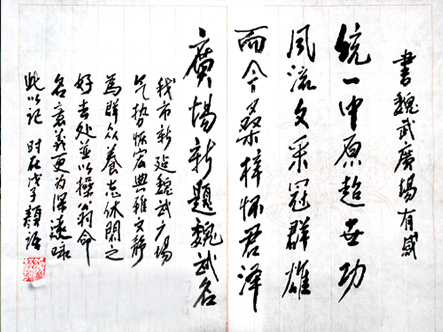 書魏武廣場有感
統一中原超世功
風流文采冠群雄
而今桑梓怀君泽
廣場新題魏武名
我市新建魏武广场
气势恢宏典雅文静
為群众養志休閒之
好去处並以操翁命
名意義更为深遠咏
此以记 时在戊子